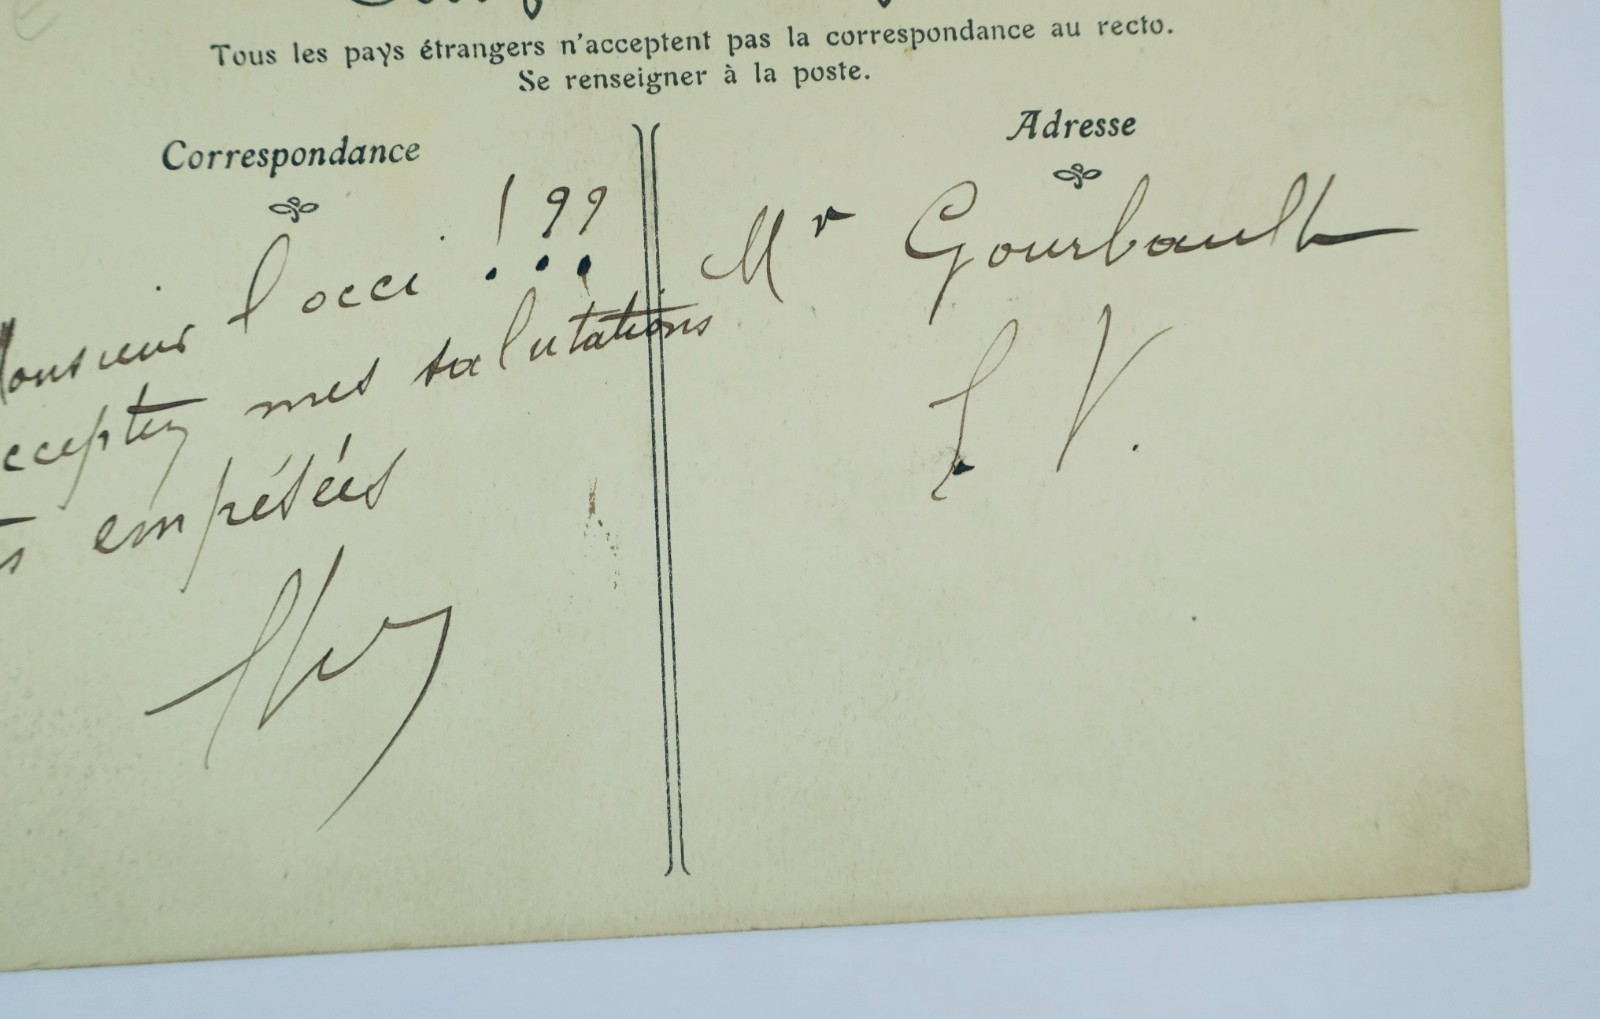 Tous les pays étrangers n'acceptent pas la correspondance au recto.
Se renseigner à la poste.
Correspondance
Monsieur l'occi !??
acceptez mes salutations
empésées
Adresse
Mr Gourbault
E. V.